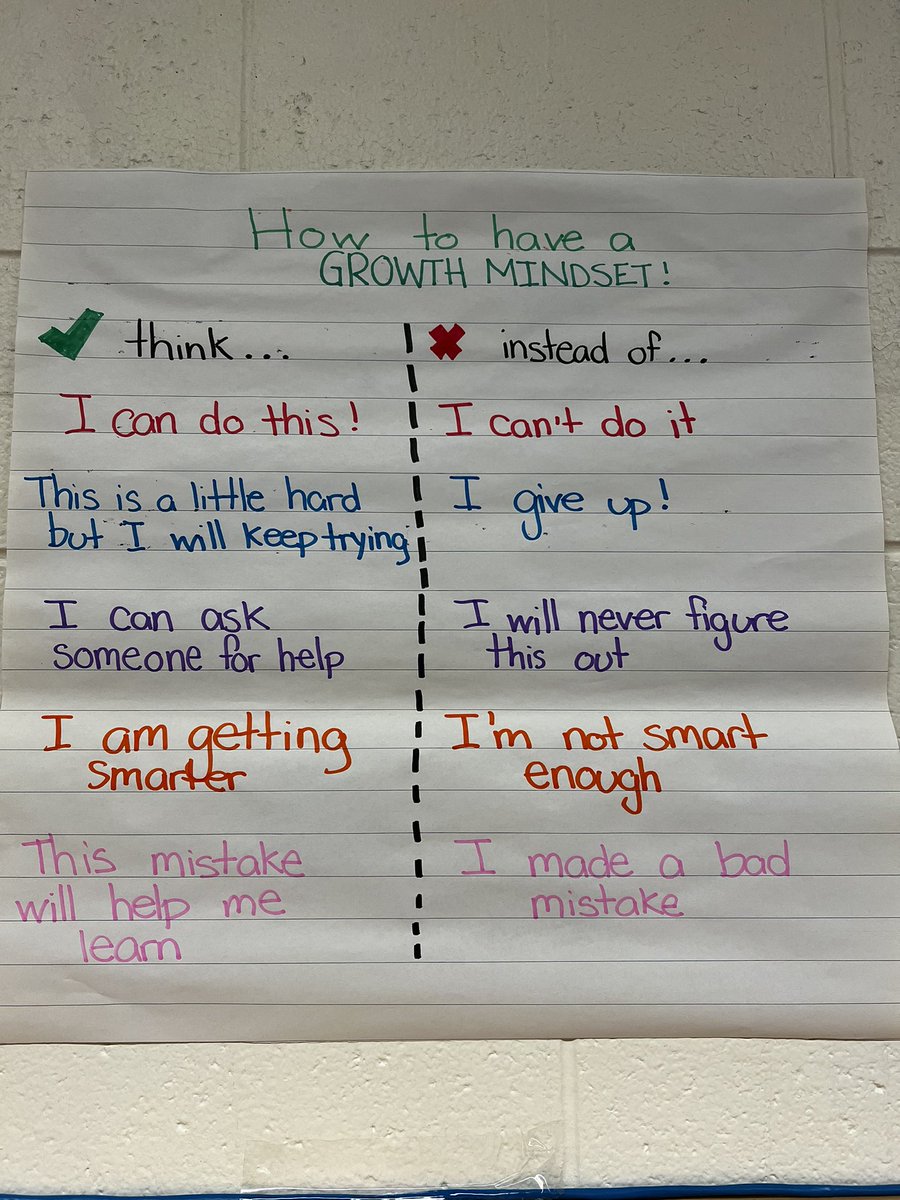 How to have a
GROWTH MINDSET!
think... instead of...
I can do this! I can't do it
This is a little hard I give up!
but I will keep trying
I can ask I will never figure
someone for help this out
I am getting I'm not smart
smarter enough
This mistake I made a bad
will help me mistake
learn